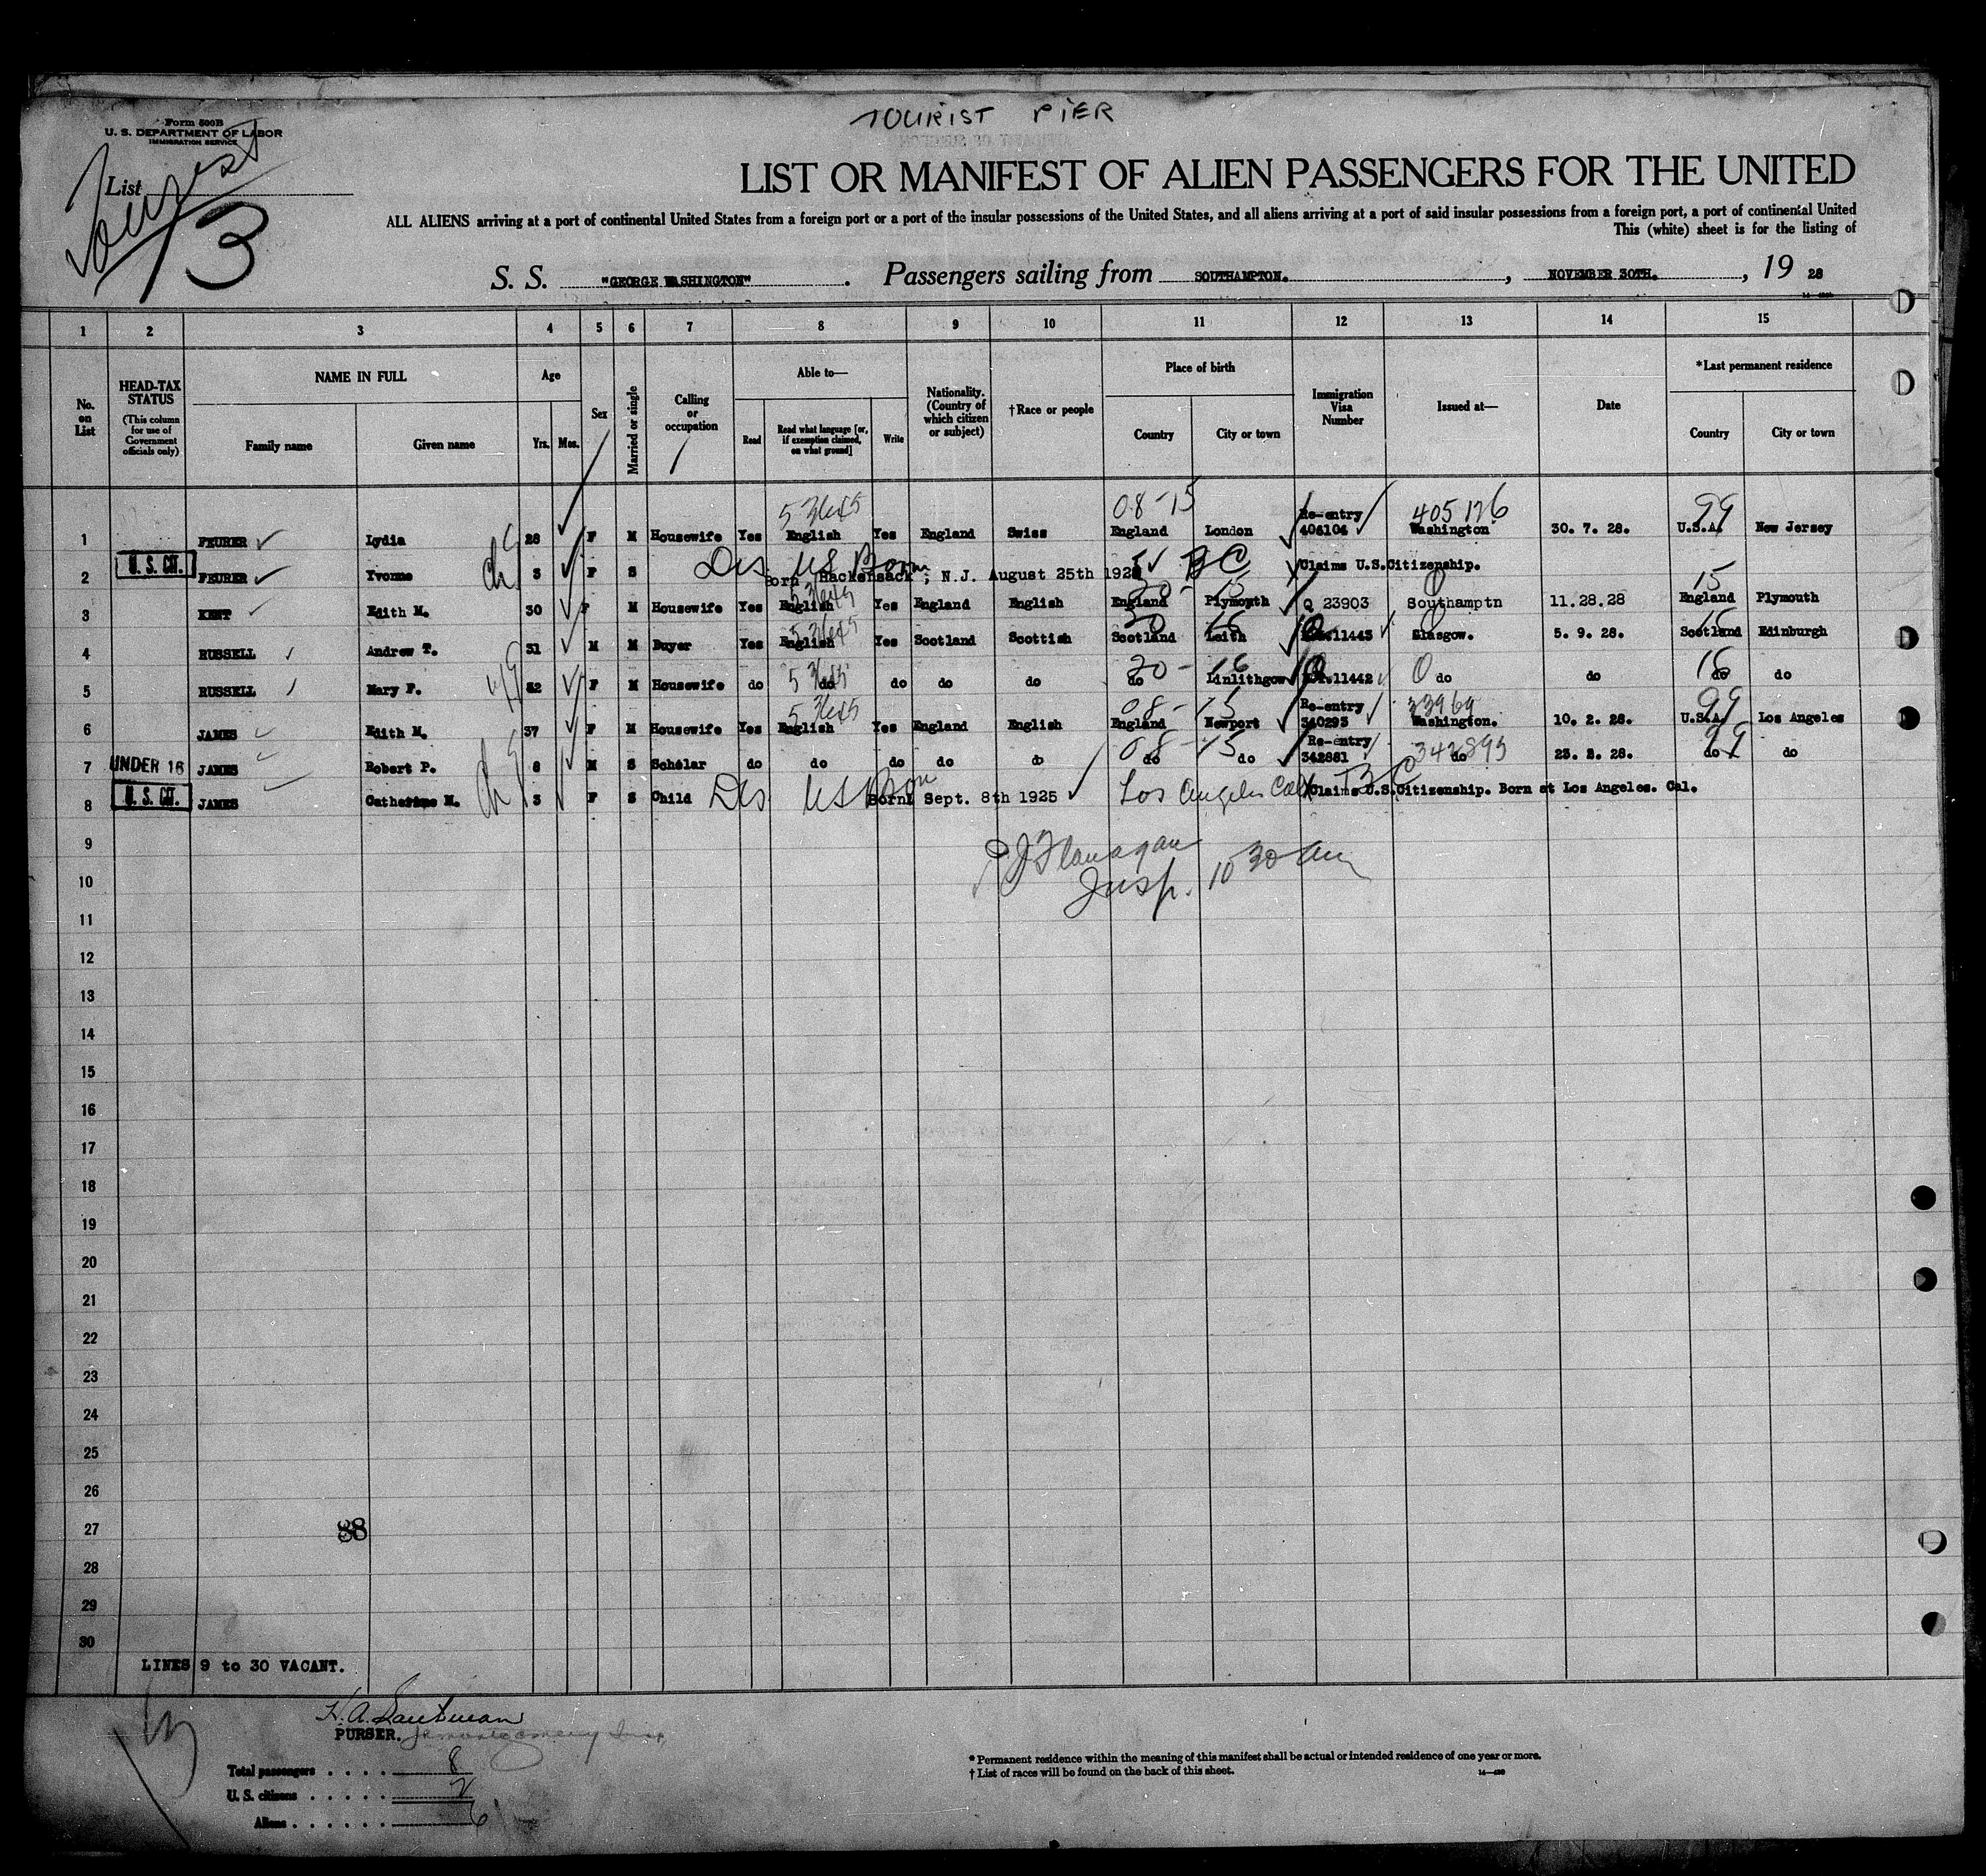 TOURIST PIER
Form 500B
U. S. DEPARTMENT OF LABOR
IMMIGRATION SERVICE
List
Tourist
13
LIST OR MANIFEST OF ALIEN PASSENGERS FOR THE UNITED
ALL ALIENS arriving at a port of continental United States from a foreign port or a port of the insular possessions of the United States, and all aliens arriving at a port of said insular possessions from a foreign port, a port of continental United
This (white) sheet is for the listing of
S. S. "GEORGE WASHINGTON". Passengers sailing from SOUTHAMPTON. , NOVEMBER 30TH. , 19 28
1 2 3 4 5 6 7 8 9 10 11 12 13 14 15
No. on List
HEAD-TAX STATUS
(This column for use of Government officials only)
NAME IN FULL
Family name
Given name
Age
Yrs.
Mos.
Sex
Married or single
Calling or occupation
Able to—
Read
Read what language [or, if exemption claimed, on what ground]
Write
Nationality. (Country of which citizen or subject)
†Race or people
Place of birth
Country
City or town
Immigration Visa Number
Issued at—
Date
*Last permanent residence
Country
City or town
08-15 405126 99
1 FEURER Lydia 28 F M Housewife Yes English Yes England Swiss England London Re-entry 406104 Washington 30. 7. 28. U.S.A. New Jersey
2 U. S. CIT. FEURER Yvonne 3 F S Dis US Born Born Hackensack, N.J. August 25th BC Claims U.S.Citizenship.
3 KENT Edith M. 30 F M Housewife Yes English Yes England English England Plymouth Q 23903 Southamptn 11.28.28 England Plymouth 15
4 RUSSELL Andrew T. 31 M M Buyer Yes English Yes Scotland Scottish Scotland Leith 11443 Glasgow. 5. 9. 28. Scotland Edinburgh
5 RUSSELL Mary F. F M Housewife do do do do do do Linlithgow 11442 do do do do
6 JAMES Edith M. 37 F M Housewife Yes English Yes England English England Newport Re-entry 340293 Washington. 10. 2. 28. U.S.A. Los Angeles
7 UNDER 16 JAMES Robert P. 8 M S Scholar do do do do do do do Re-entry 342881 do do do
8 U. S. CIT. JAMES Catherine M. 3 F S Child Dis US Born Born Sept. 8th 1925 Los Angeles Cal BC Claims U.S.Citizenship. Born at Los Angeles. Cal.
9
P J Flanagan
10
Insp. 10 30 am
11
12
13
14
15
16
17
18
19
20
21
22
23
24
25
26
27 38
28
29
30
LINES 9 to 30 VACANT.
PURSER.
Total passengers . . . . 8
U. S. citizens . . . . . 2
Aliens . . . . . . 6
* Permanent residence within the meaning of this manifest shall be actual or intended residence of one year or more.
† List of races will be found on the back of this sheet.